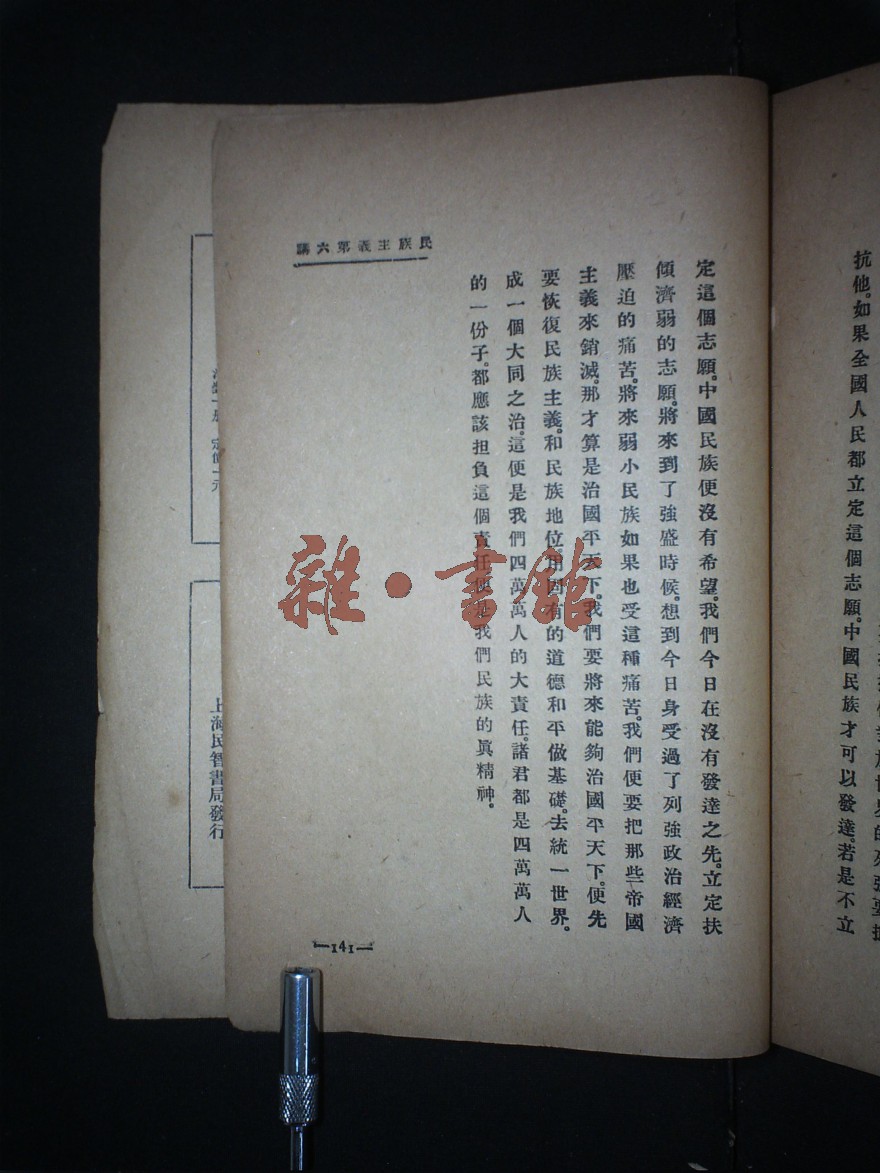 抗他。如果全國人民都立定這個志願。中國民族才可以發達。若是不立
定這個志願。中國民族便沒有希望。我們今日在沒有發達之先。立定扶
傾濟弱的志願。將來到了強盛時候。想到今日身受過了列強政治經濟
壓迫的痛苦。將來弱小民族如果也受這種痛苦。我們便要把那些帝國
主義來銷滅。那才算是治國平天下。我們要將來能夠治國平天下。便先
要恢復民族主義。和民族地位。用固有的道德和平做基礎。去統一世界。
成一個大同之治。這便是我們四萬萬人的大責任。諸君都是四萬萬人
的一份子。都應該担負這個責任。便是我們民族的眞精神。
民族主義第六講
—141—
定價一元
上海民智書局發行
雜·書館